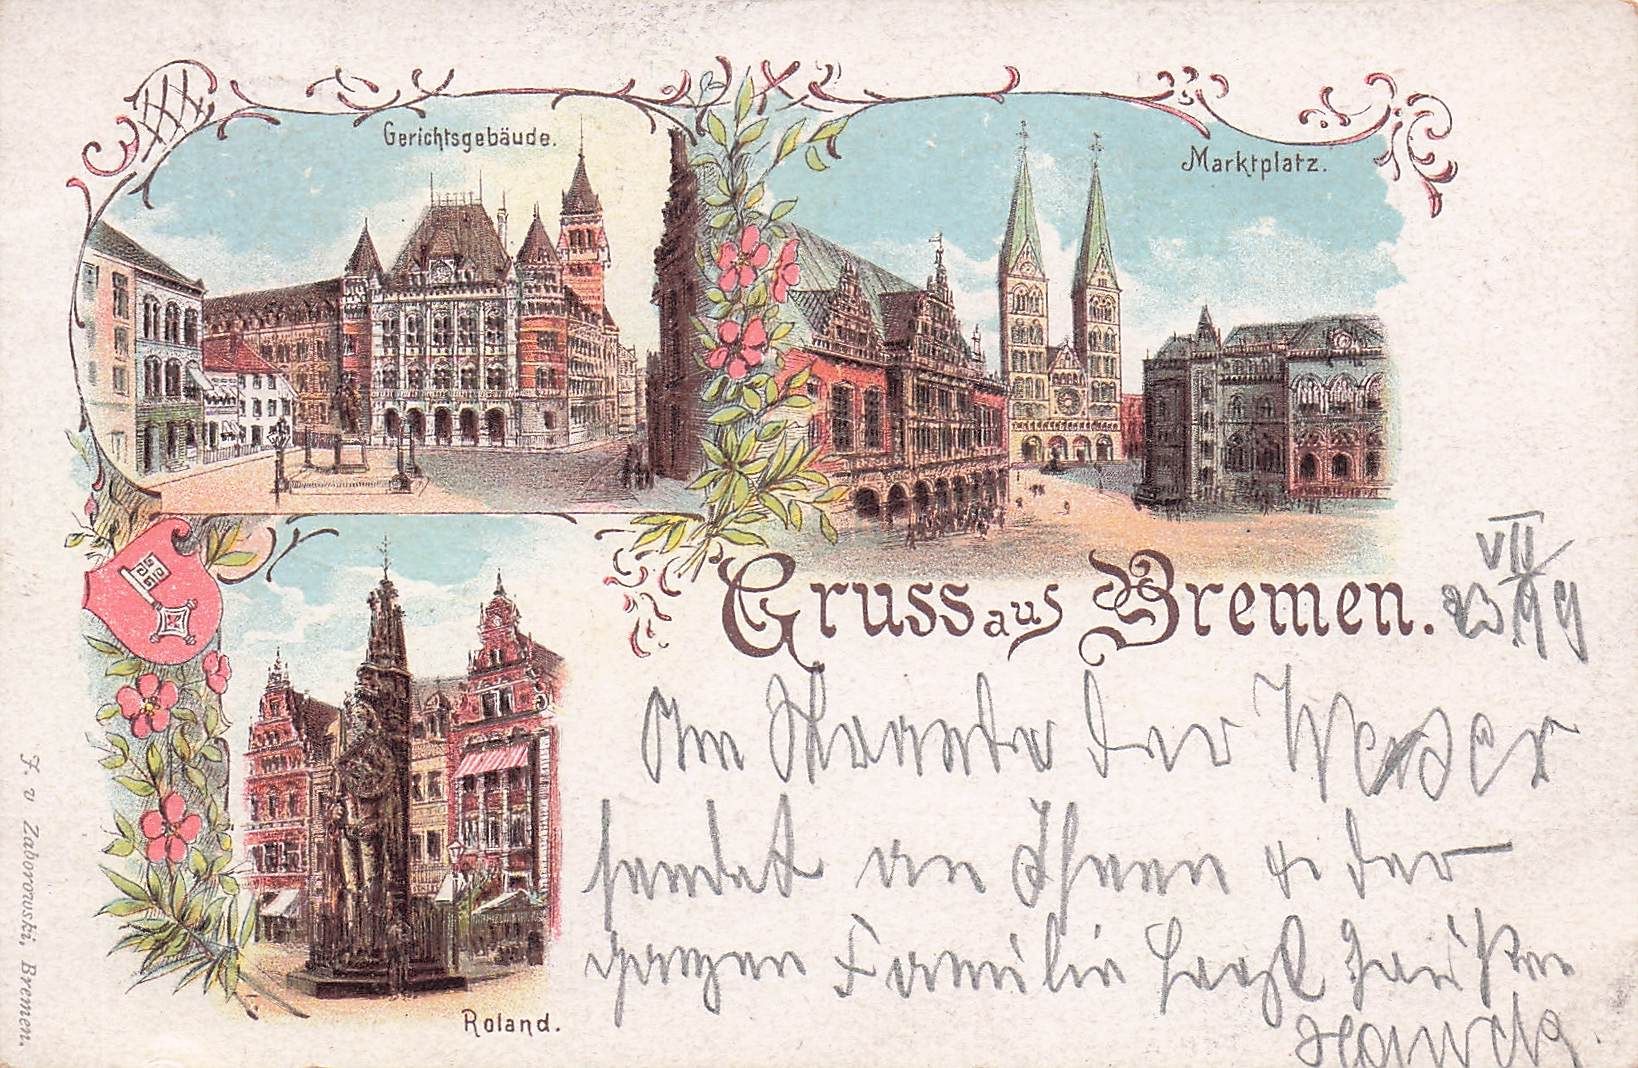 Gerichtsgebäude.
Marktplatz.
Gruss aus Bremen.
23 VII 99
Am Strande der Weser
sendet an Ihnen & der
ganzen Familie herzl
Roland.
J. v Zaborowski, Bremen.